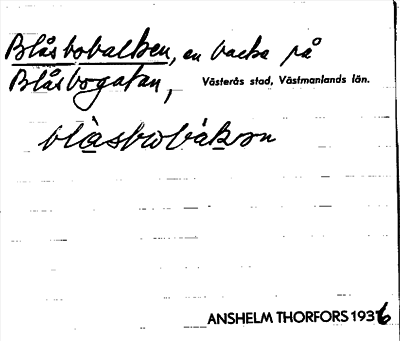 Blåsbobacken, en backe på
Blåsbogatan, Västerås stad, Västmanlands län.
blåsbobakən
ANSHELM THORFORS 1936